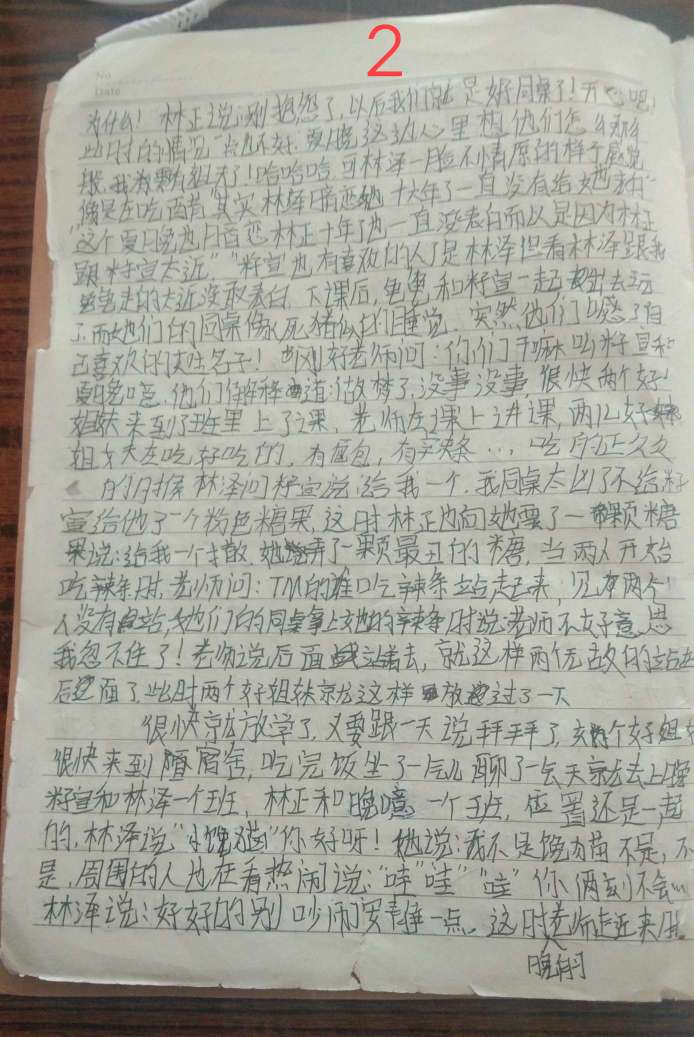 2
No
Date
为什么！林正说：别抱怨了，以后我们就是好同桌了！开心吧！
此时的情况一点也不好，夏晚这边心里想他们怎么那
我为要打起来了！哈哈哈，可林泽一脸不情愿的样子感觉
像是在吃醋，其实林泽暗恋她十六年了一直没有给她表白
这个夏晚也暗恋林正十年了也一直没表白而以是因为林正
跟籽宣太近""籽宣也有喜欢的人了是林泽但看林泽跟我
走的太近没敢表白，下课后，和籽宣一起出去玩
了，而她们的同桌像死猪似的睡觉，突然他们喊了自
己喜欢的女生名子！刚好老师问：你们干嘛叫籽宣和
夏晚噫，他们解释道：做梦了，没事没事，很快两个好
姐妹来到了班里上了课，老师在课上讲课，两个好
姐妹在吃好吃的，有面包，有辣条…吃的正久久
的时候林泽问籽宣说：给我一个，我同桌太凶了不给籽
宣给他了一个粉色糖果，这时林正也向她要了一颗糖
果说：给我一个，她弄了一颗最丑的糖，当两人开始
吃辣条时，老师问：TM的谁吃辣条站起来，见本两个
人没有站，她们的同桌拿上她的辣条时说老师不好意思
我忍不住了！老师说后面站去，就这样两个无故的站在
后面了，此时两个好姐妹就这样放过了一天
很快就放学了，又要跟一天说拜拜了，两个好姐妹
很快来到宿舍，吃完饭坐了一会儿聊了会天就去上晚
籽宣和林泽一个班，林正和晚噫一个班，位置还是一起
的，林泽说"小馋猫"你好呀！她说：我不是馋猫不是，不
是，周围的人也在看热闹说："哇""哇""哇"你俩别不会…
林泽说：好好的别吵闹安静一点。这时老师走近来
晚自习